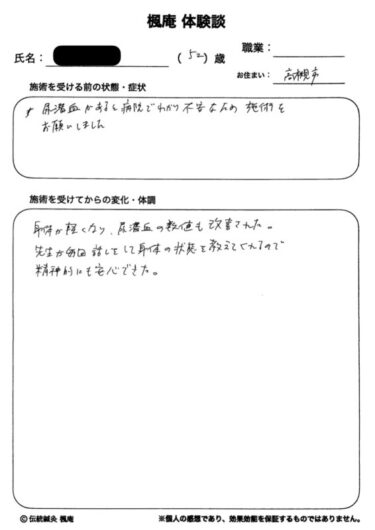 楓庵 体験談
氏名： （52）歳 職業：
お住まい： 高槻市
施術を受ける前の状態・症状
尿潜血があると病院でわかり不安なため 施術を
お願いしました
施術を受けてからの変化・体調
身体が軽くなり、尿潜血の数値も改善された。
先生が毎回話しをして身体の状態を教えてくれるので
精神的にも安心できた。
© 伝統鍼灸 楓庵 ※個人の感想であり、効果効能を保証するものではありません。